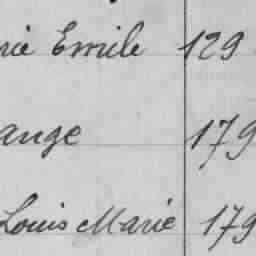 rie Emile 129
ange 179
Louis Marie 179